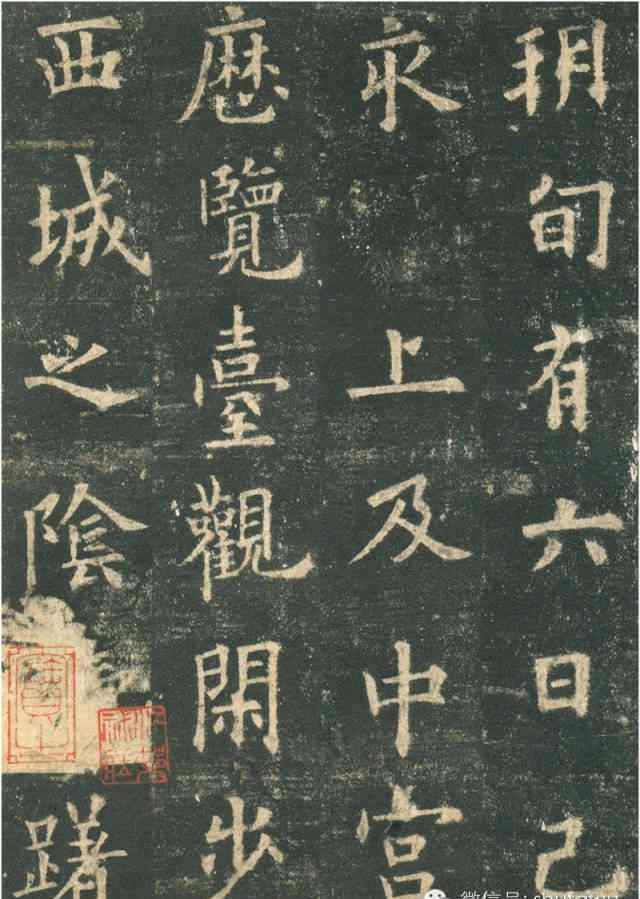 玥旬有六日己
永上及中宮
厯覽臺觀閑步
西城之陰躇
微信号: